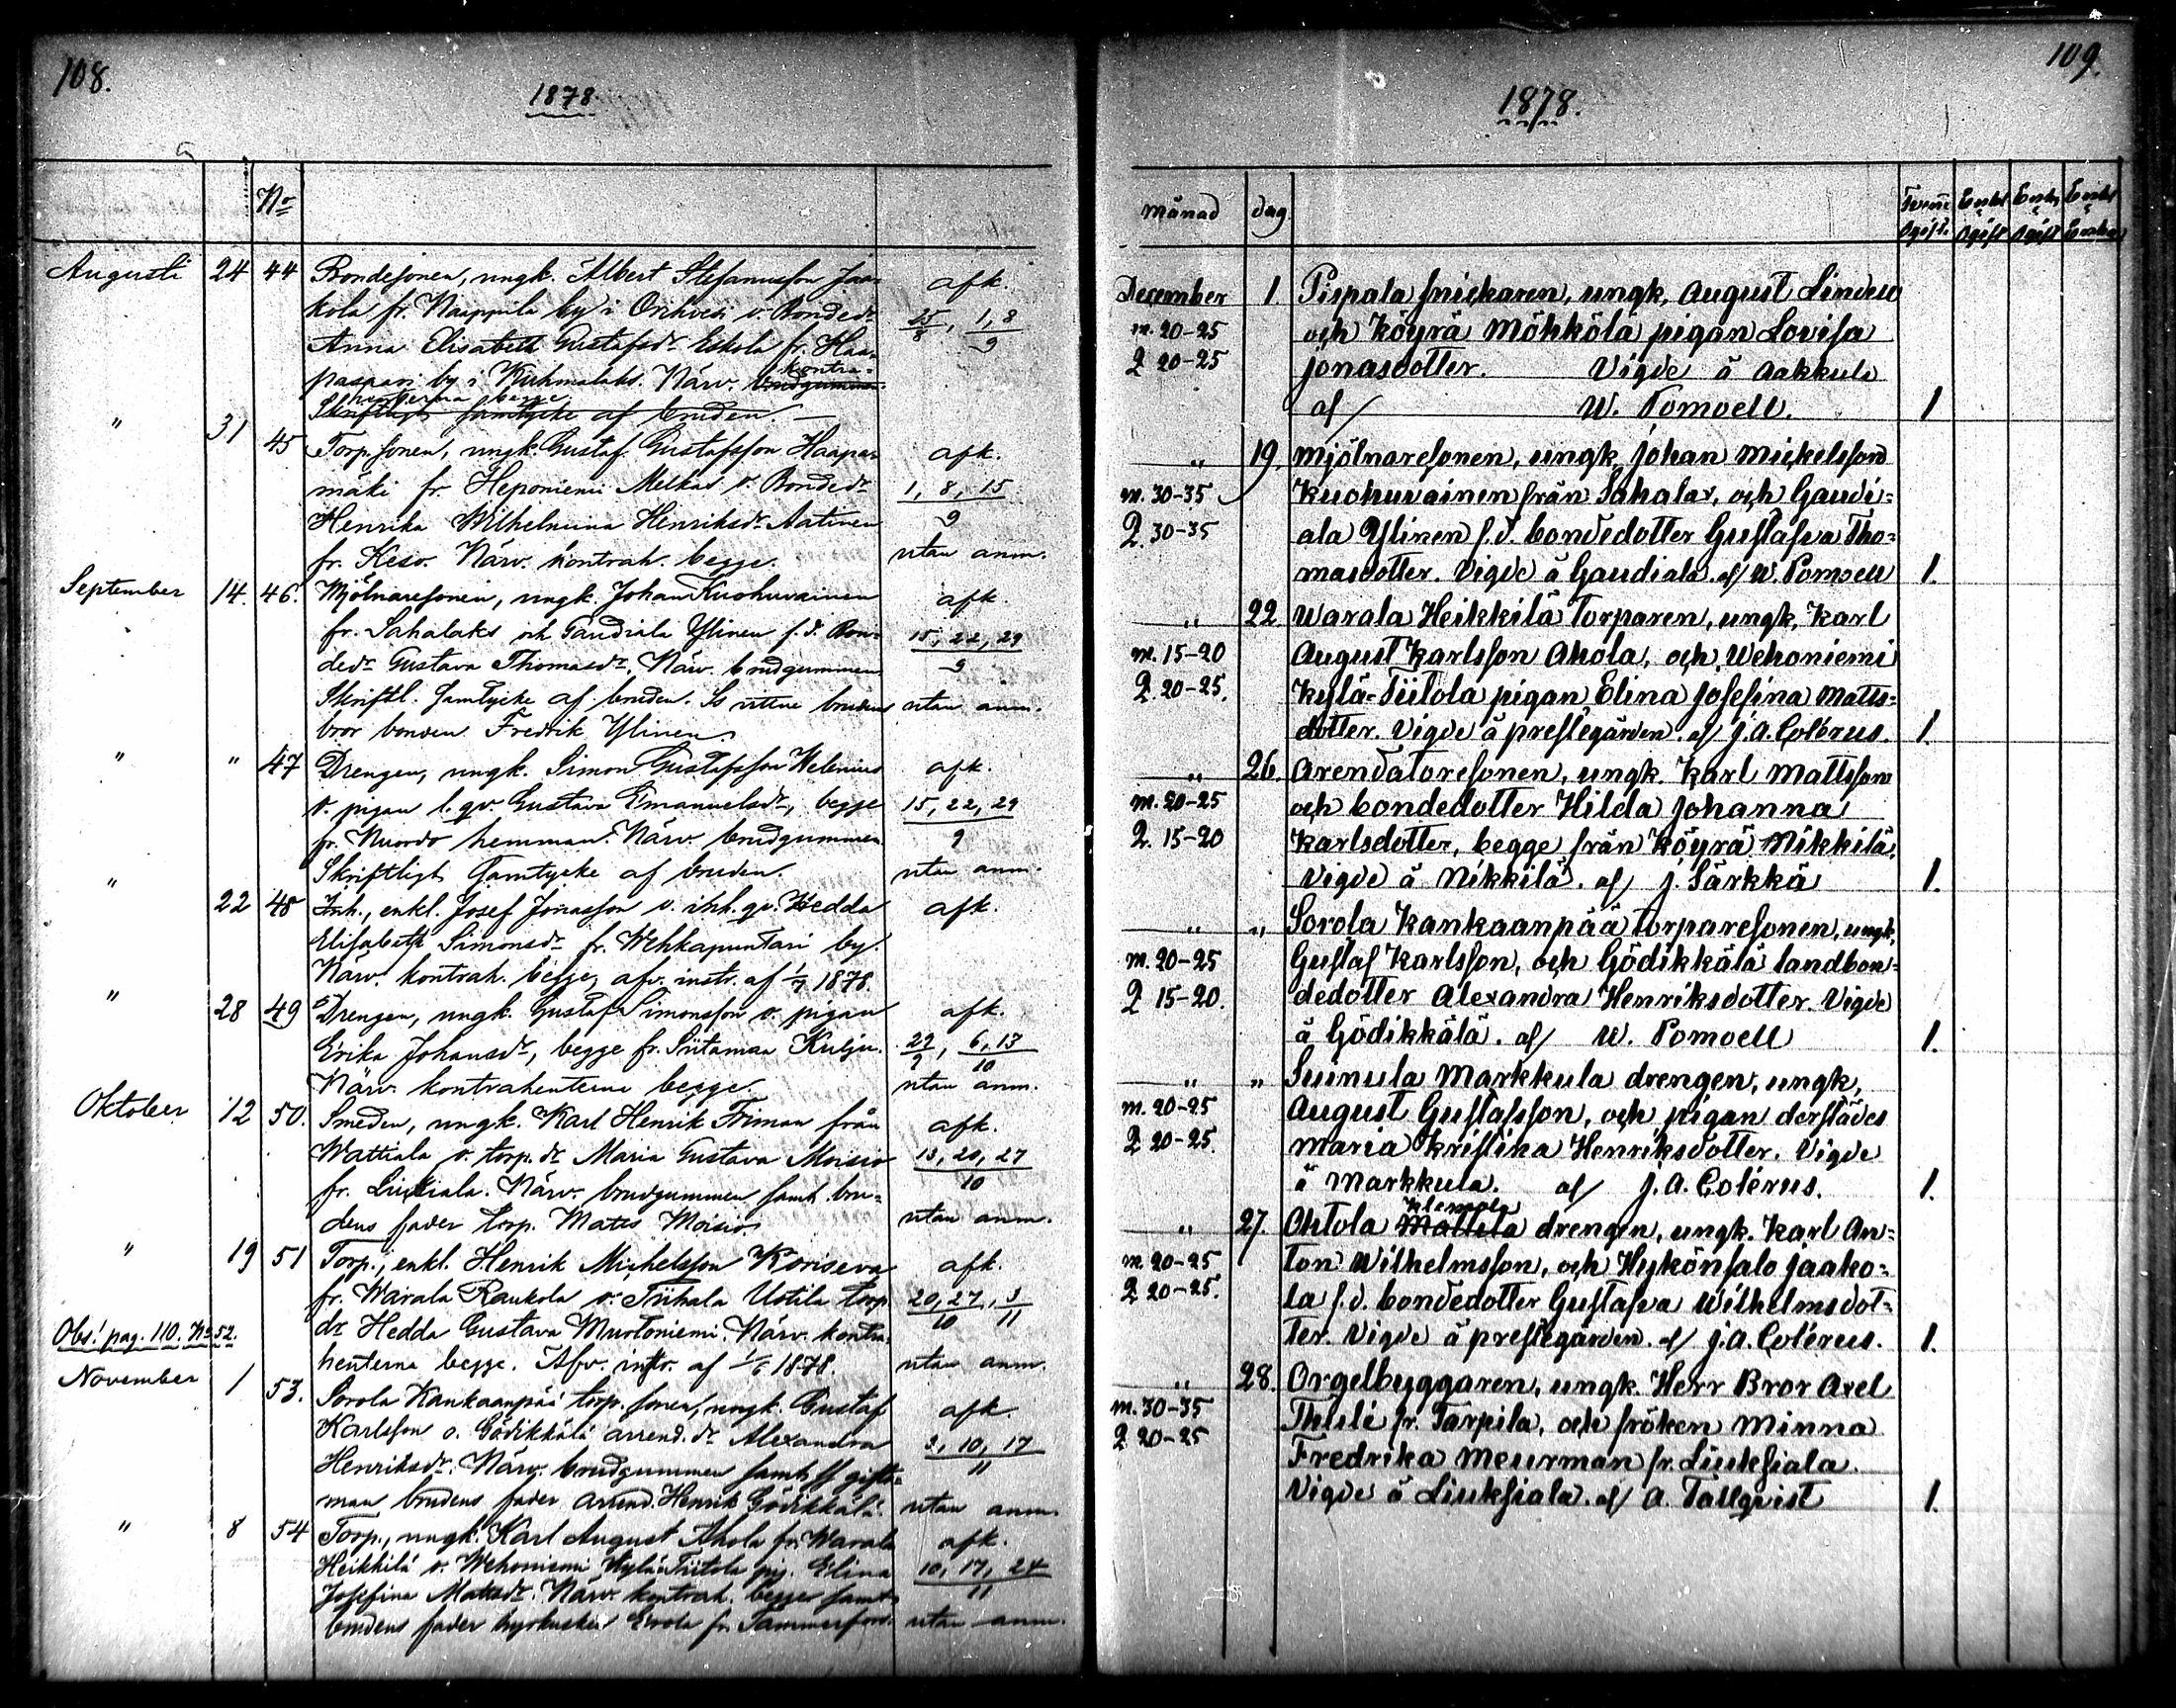 108.
1878.
No
Augusti 24 44 Bondesonen, ungk. Albert Stefanusson Jaa- afk.
kola fr. Naappila by i Orihvesi o. Bondedr 25/8, 1, 8/9
Anna Elisabeth Gustafsdr Eskola fr. Haa-
pasaari by i Kuhmalaks. Närv. kontra-
henterna begge
Skriftligt samtycke af bruden.
" 31 45 Torp.sonen, ungk. Gustaf Gustafsson Haapa- afk.
mäki fr. Heponiemi Melkas o. Bondedr 1, 8, 15
Henrika Wilhelmina Henriksdr Aatinen 9
fr. Keso. Närv. kontrah. begge. utan anm.
September 14. 46. Mjölnaresonen, ungk. Johan Kuohuvainen afk.
fr. Sahalaks och Gaudiala Ylinen f.d. Bon- 15, 22, 29
dedr Gustava Thomasdr. Närv. brudgummen 9
Skriftl. samtycke af bruden. Ss vittne brudens utan anm.
bror bonden Fredrik Ylinen.
" " 47 Drengen, ungk. Simon Gustafsson Welenius afk.
o. pigan l. qv. Gustava Emanuelsdr, begge 15, 22, 29
fr. Nuordo hemman. Närv. brudgummen 9
Skriftligt samtycke af bruden. utan anm.
" 22 48 Inh., enkl. Josef Jonasson o. inh. qv. Hedda afk.
Elisabeth Simonsdr fr. Wehkapuntari by.
Närv. kontrah. begge, afv. instr. af 1/7 1878.
" 28 49 Drengen, ungk. Gustaf Simonsson o. pigan afk.
Erika Johansdr, begge fr. Siitamaa Kulju. 22/9, 6, 13/10
Närv. kontrahenterna begge. utan anm.
Oktober 12 50. Smeden, ungk. Karl Henrik Friman från afk.
Wattiala o. torp. dr Maria Gustava Moisio 13, 20, 27
fr. Liuksiala. Närv. brudgummen samt bru- 10
dens fader torp. Matts Moisio. utan anm.
" 19 51 Torp., enkl. Henrik Michelsson Koriseva afk.
fr. Warala Raukola o. Tiihala Uotila torp. 20, 27/10, 3/11
Obs! pag. 110. No 52. dr Hedda Gustava Murtoniemi. Närv. kontra-
henterna begge. Afv. instr. af 1/6 1878. utan anm.
November 1 53. Sorola Kankaanpää torp. sonen, ungk. Gustaf afk.
Karlsson o. Gödikkälä arrend. dr Alexandra 3, 10, 17
Henriksdr. Närv. brudgummen samt ss gifto- 11
man brudens fader arrend. Henrik Gödikkälä. utan anm.
" 8 54 Torp., ungk. Karl August Ahola fr. Warala afk.
Heikkilä o. Wehoniemi Kylä-Tiitola pig. Elina 10, 17, 24
Josefina Mattsdr. Närv. kontrah. begge samt 11
brudens fader hyrkusken Erola fr. Tammerfors. utan anm.
109.
1878.
Månad dag.
December 1. Pispala snickaren, ungk. August Lindell
m. 20-25 och Köyrä Möhkölä pigan Lovisa
Q 20-25 Jonasdotter. Vigde å Aakkula
af W. Pomoell. 1
" 19. Mjölnaresonen, ungk. Johan Mickelsson
m. 30-35 Kuohuvainen från Sahalax, och Gaudi-
Q. 30-35 ala Ylinen f.d. bondedotter Gustafva Tho-
masdotter. Vigde å Gaudiala. af W. Pomoell 1.
" 22 Warala Heikkilä Torparen, ungk. Karl
m. 15-20 August Karlsson Ahola, och Wehoniemi
Q. 20-25. Kylä-Tiitola pigan, Elina Josefina Matts-
dotter. Vigde å prestegården. af J.A. Colérus. 1.
" 26. Arendatoresonen, ungk. Karl Mattsson
m. 20-25 och bondedotter Hilda Johanna
Q. 15-20 Karlsdotter, begge från Köyrä Nikkilä.
Vigde å Nikkilä. af J. Särkkä 1.
" " Sorola Kankaanpää torparesonen, ungk.
m. 20-25 Gustaf Karlsson, och Gödikkälä landbon-
Q 15-20. dedotter Alexandra Henriksdotter. Vigde
å Gödikkälä. af W. Pomoell 1.
" " Suinula Markkula drengen, ungk.
m. 20-25 August Gustafsson, och pigan derstädes
Q 20-25. Maria Kristina Henriksdotter. Vigde
å Markkula. af J.A. Colérus. 1.
Klemola
" 27. Ohtola Mattila drengen, ungk. Karl An-
m. 20-25 ton Wilhelmsson, och Hykönsalo Jaako-
Q 20-25. la f.d. bondedotter Gustafva Wilhelmsdot-
ter. Vigde å prestegården. af J.A. Colérus. 1.
" 28. Orgelbyggaren, ungk. Herr Bror Axel
m. 30-35 Thulé fr. Tarpila, och fröken Minna
Q 20-25 Fredrika Meurman fr. Liuksiala.
Vigde å Liuksiala. af A. Tallqvist 1.